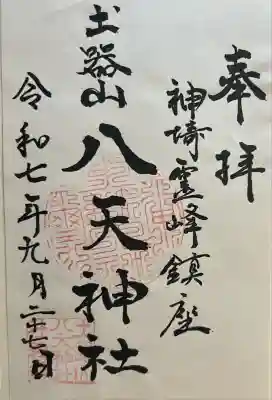 奉拝
神埼霊峰鎮座
土器山
八天神社
令和七年九月二十七日